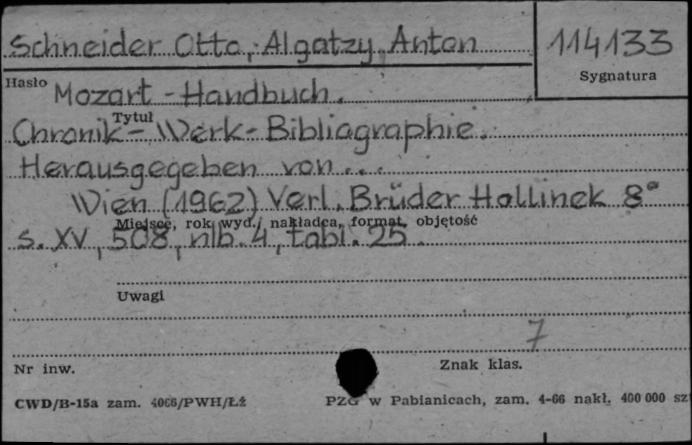 Schneider Otto, Algatzy Anton
114133
Sygnatura
Hasło
Mozart - Handbuch.
Tytuł
Chronik - Werk - Bibliographie.
Herausgegeben von...
Wien (1962) Verl. Brüder Hollinek 8°
Miejsce, rok wyd., nakładca, format, objętość
s. XV, 508, nlb. 4, tabl. 25.
Uwagi
7
Nr inw.
Znak klas.
CWD/B-15a zam. 4066/PWH/Łż
PZG w Pabianicach, zam. 4-66 nakł. 400 000 szt